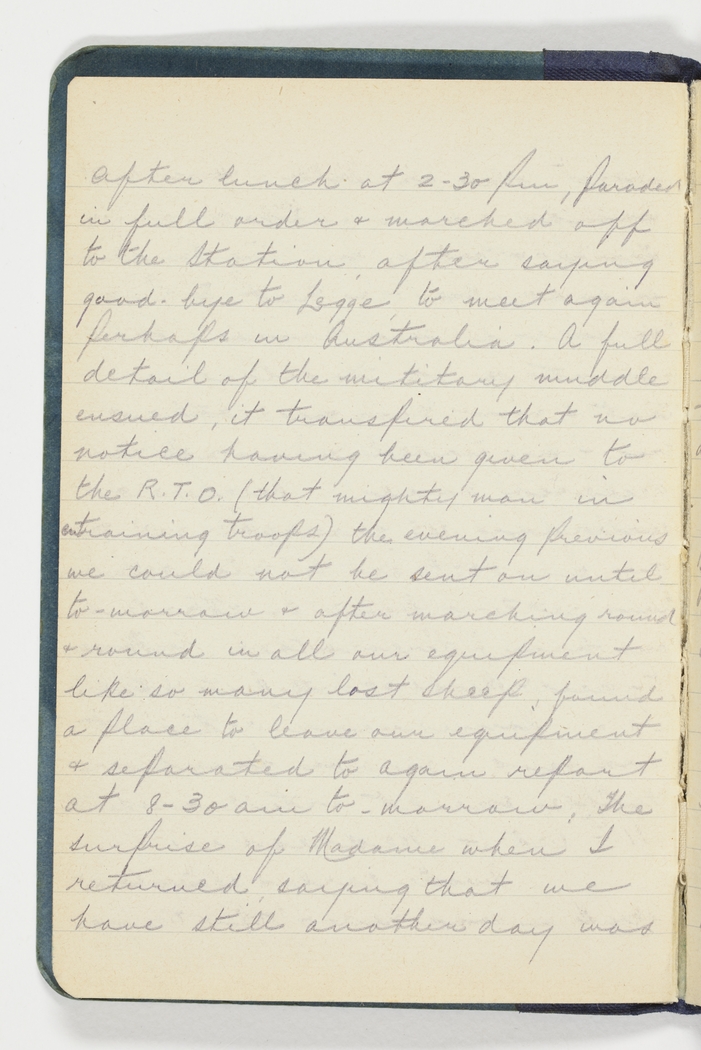 After lunch at 2-30 pm, paraded
in full order & marched off
to the Station, after saying
good-bye to Legge, to meet again
perhaps in Australia. A full
detail of the mititary muddle
ensued, it transpired that no
notice having been given to
the R.T.O. (that mighty man in
entraining troops) the evening previous
we could not be sent on until
to-morrow & after marching round
& round in all our equipment
like so many lost sheep, found
a place to leave our equipment
& separated to again report
at 8-30 am to-morrow. The
surprise of Madame when I
returned, saying that we
have still another day was